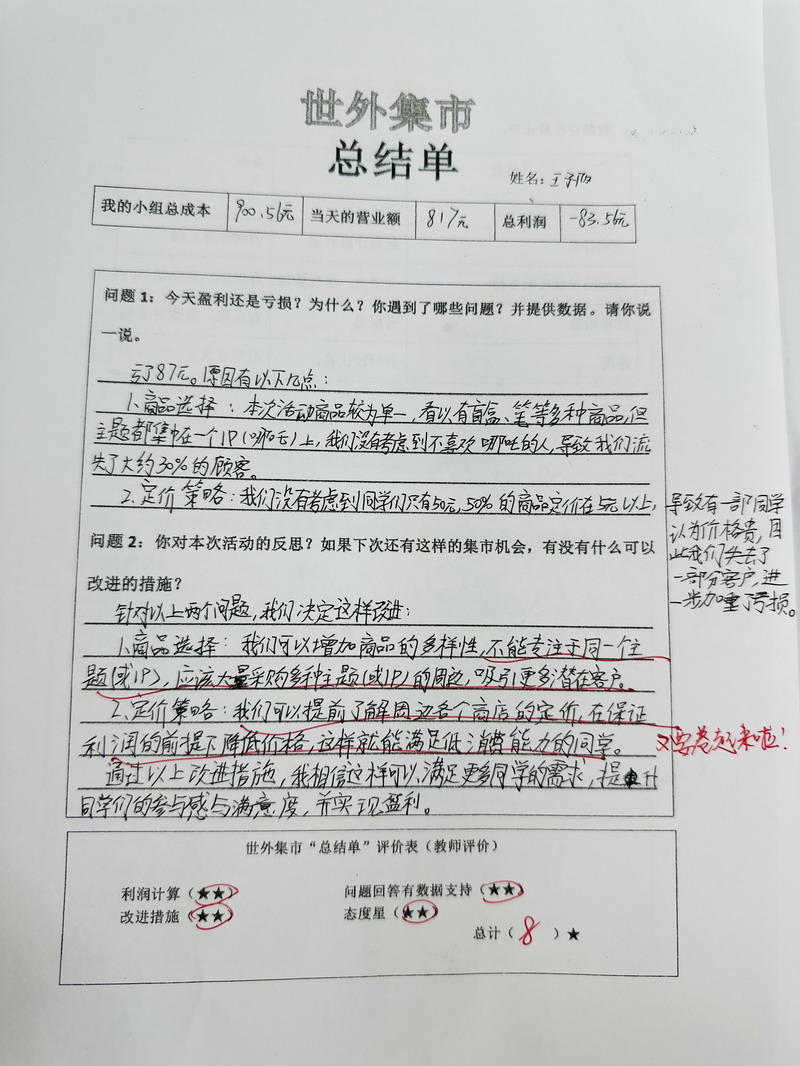 世外集市
总结单
姓名：王
我的小组总成本 900.56元 当天的营业额 817元 总利润 -83.56元
问题 1：今天盈利还是亏损？为什么？你遇到了哪些问题？并提供数据。请你说
一说。
亏了87元。原因有以下几点：
1.商品选择：本次活动商品较为单一，看以有盲盒、笔等多种商品，但
主题都集中在一个IP（哪吒）上，我们没有考虑到不喜欢哪吒的人，导致我们流
失了大约30%的顾客。
2.定价策略：我们没有考虑到同学们只有50元，50%的商品定价在5元以上，
导致有一部同学
认为价格贵，因
此我们失去了
一部分客户，进
一步加重了亏损。
问题 2：你对本次活动的反思？如果下次还有这样的集市机会，有没有什么可以
改进的措施？
针对以上两个问题，我们决定这样改进：
1.商品选择：我们可以增加商品的多样性，不能专注于同一个主
题（或IP），应该大量采购多种主题（或IP）的周边，吸引更多潜在客户。
2.定价策略：我们可以提前了解周边各个商店的定价，在保证
利润的前提下降低价格，这样就能满足低消费能力的同学。
又要卷起来啦！
通过以上改进措施，我相信这样可以满足更多同学的需求，提升
同学们的参与感与满意度，并实现盈利。
世外集市“总结单”评价表（教师评价）
利润计算（★★） 问题回答有数据支持（★★）
改进措施（★★） 态度星（★★）
总计（ 8 ）★